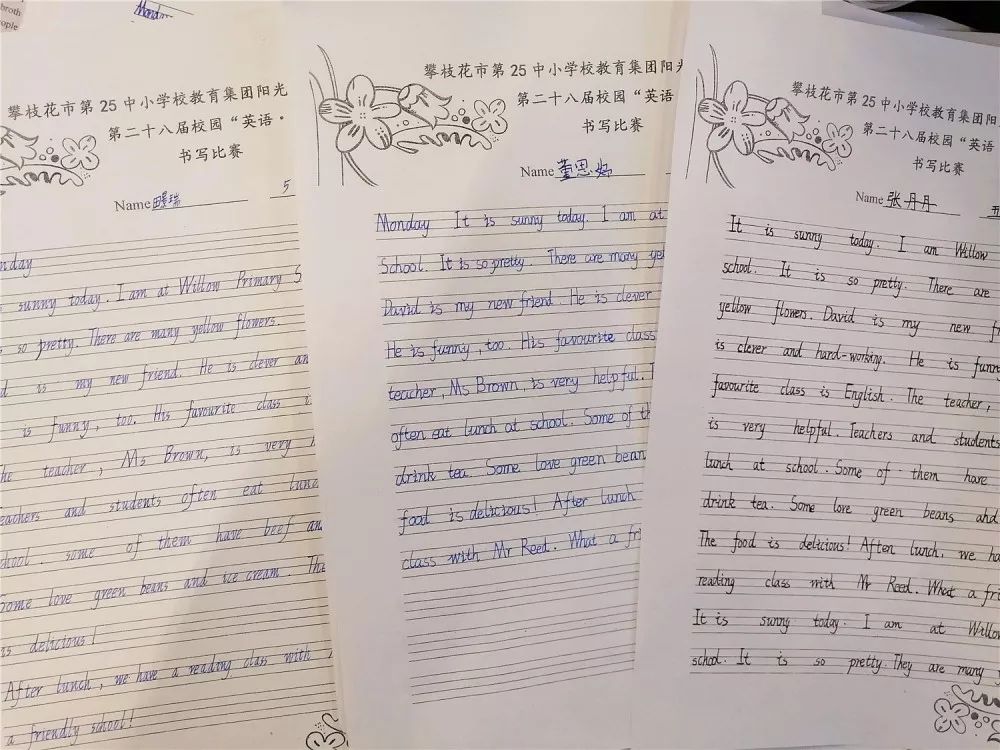 broth
ople
Monday
攀枝花市第25中小学校教育集团阳光
第二十八届校园“英语·
书写比赛
Name
5
nday
sunny today. I am at Willow Primary S
so pretty. There are many yellow flowers.
d is my new friend. He is clever an
is funny, too. His favourite class i
he teacher, Ms Brown, is very
eachers and students often eat lunc
chool. some of them have beef an
Some love green beans and ice cream. The
is delicious!
After lunch, we have a reading class with
a friendly school!
攀枝花市第25中小学校教育集团阳光
第二十八届校园“英语
书写比赛
Name 董思
Monday It is sunny today. I am at
School. It is so pretty. There are many yel
David is my new friend. He is clever
He is funny, too. His favourite class
teacher, Ms Brown, is very helpful. T
often eat lunch at school. Some of th
drink tea. Some love green bean
food is delicious! After lunch
class with Mr Reed. What a fri
攀枝花市第25中小学校教育集团阳
第二十八届校园“英语
书写比赛
Name 张丹丹
五
It is sunny today. I am Willow
school. It is so pretty. There are
yellow flowers. David is my new f
is clever and hard-working. He is funn
favourite class is English. The teacher,
is very helpful. Teachers and students
lunch at school. Some of them have
drink tea. Some love green beans and
The food is delicious! Aften lunch, we ha
reading class with Mr Reed. What a frie
It is sunny today. I am at Willow
school. It is so pretty. They are many y